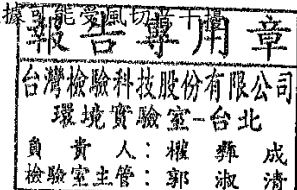 據可能受風切等干擾
報告專用章
台灣檢驗科技股份有限公司
環境實驗室-台北
負責人:權彝成
檢驗室主管:郭淑清